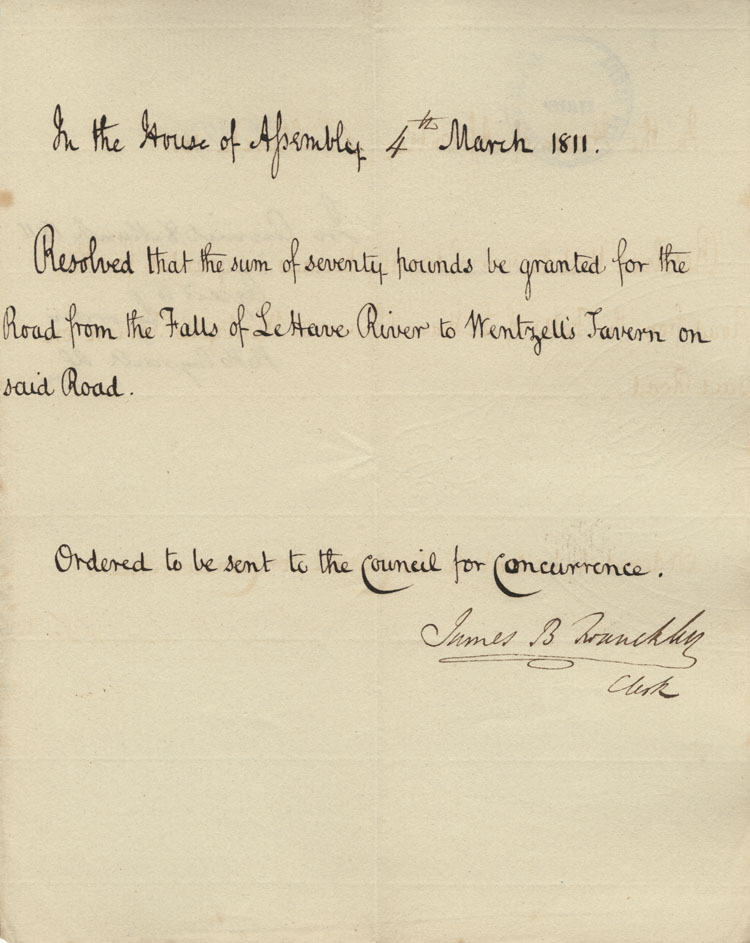 In the House of Aſsembly 4th March 1811.
Resolved that the sum of seventy pounds be granted for the
Road from the Falls of LeHave River to Wentzell's Tavern on
said Road.
Ordered to be sent to the Council for Concurrence.
James B Franckly
Clerk